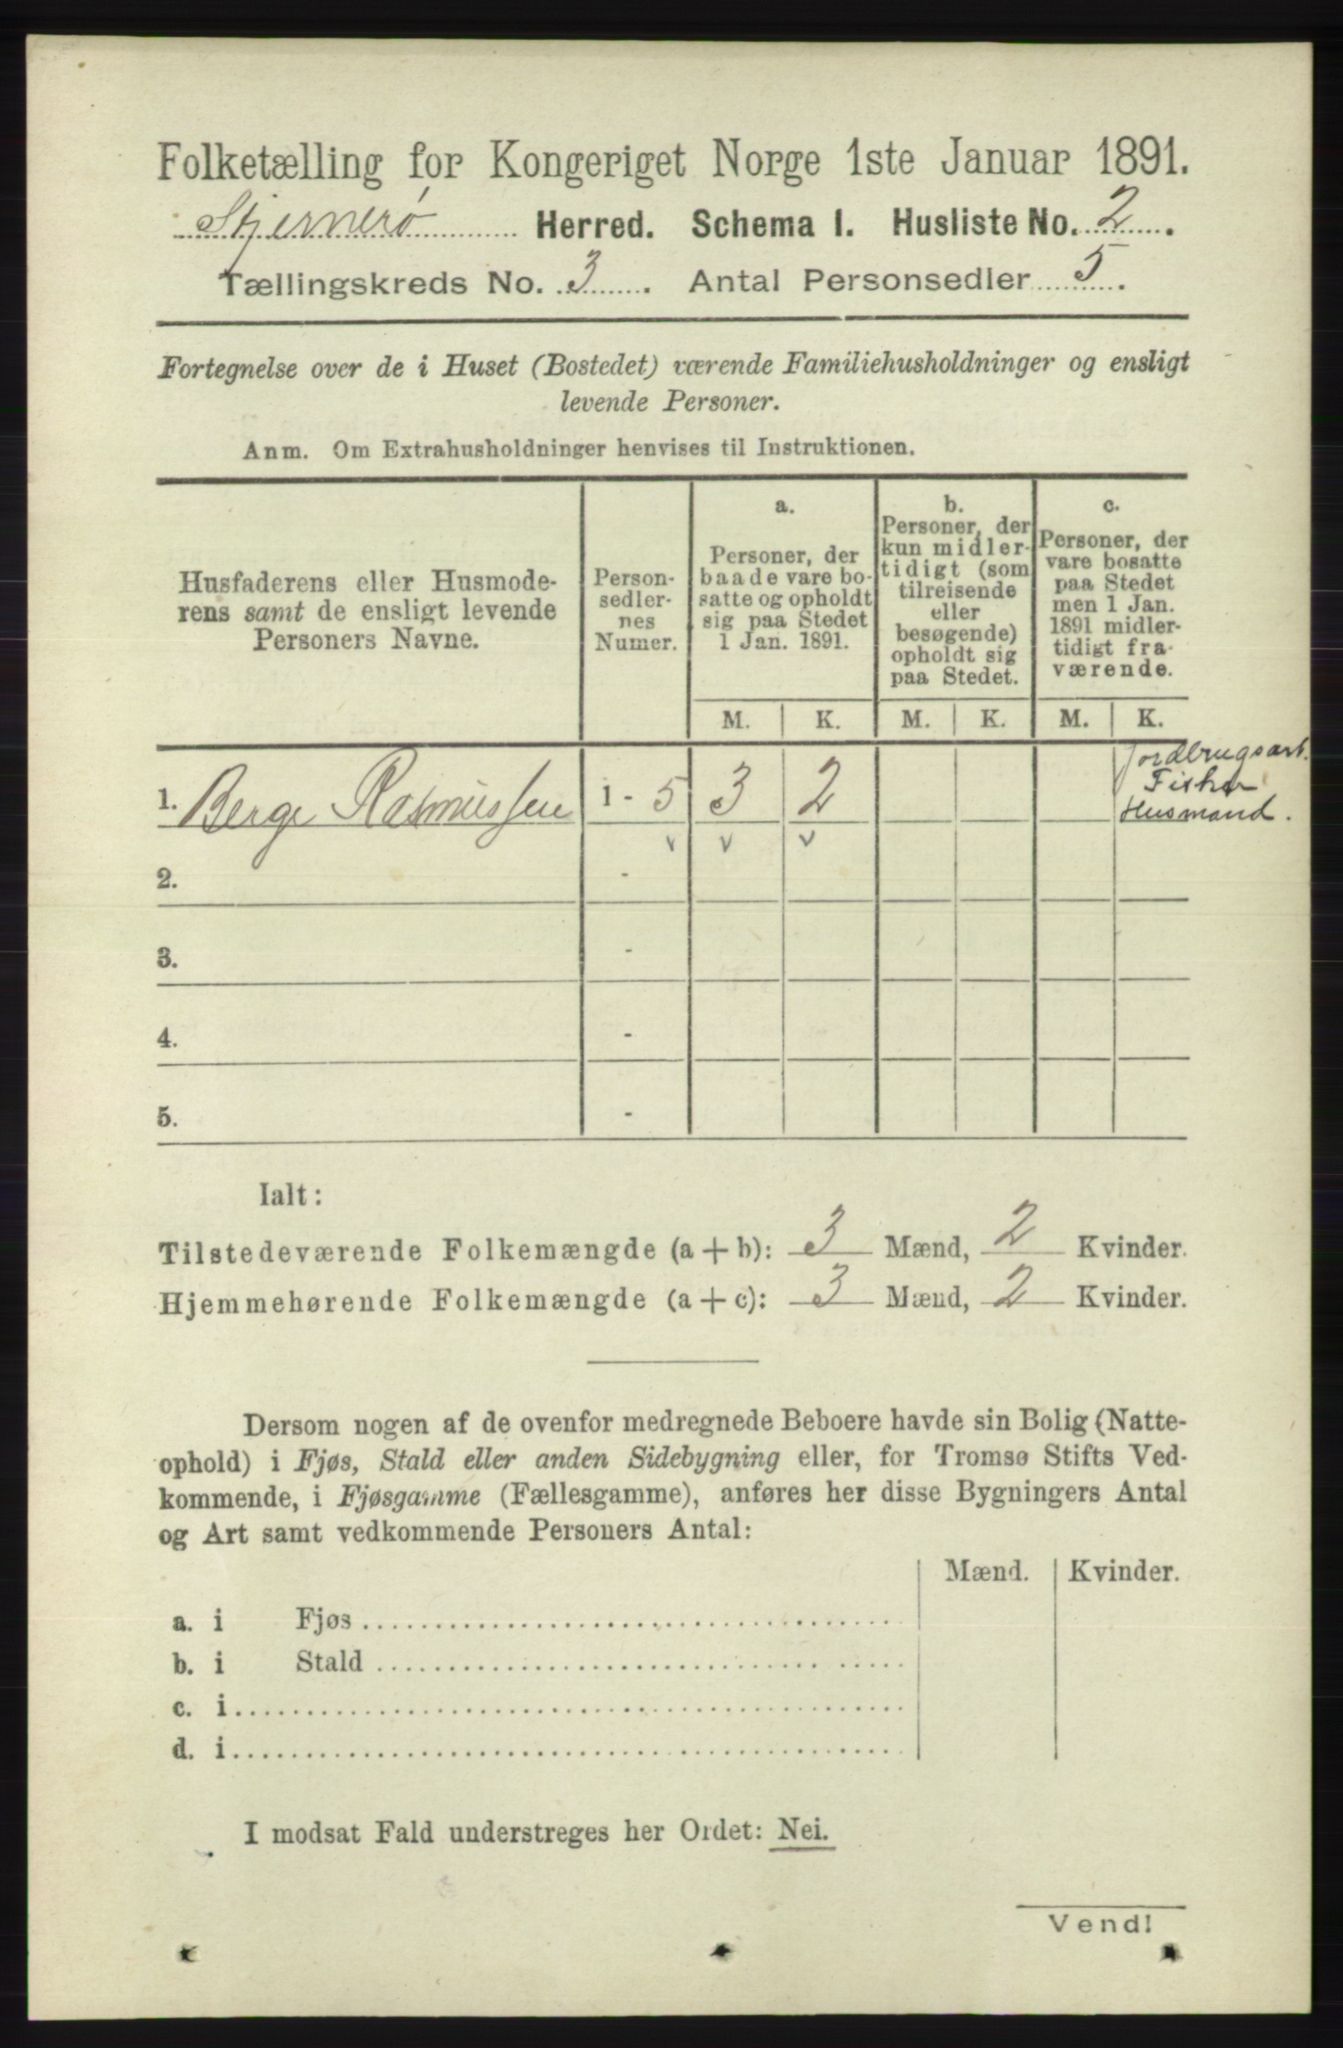 Folketælling for Kongeriget Norge 1ste Januar 1891.
Stjernerø Herred. Schema I. Husliste No. 2.
Tællingskreds No. 3. Antal Personsedler 5.
Fortegnelse over de i Huset (Bostedet) værende Familiehusholdninger og ensligt
levende Personer.
Anm. Om Extrahusholdninger henvises til Instruktionen.
Husfaderens eller Husmode-
rens samt de ensligt levende
Personers Navne.
Person-
sedler-
nes
Numer.
a.
Personer, der
baade vare bo-
satte og opholdt
sig paa Stedet
1 Jan. 1891.
b.
Personer, der
kun midler-
tidigt (som
tilreisende
eller
besøgende)
opholdt sig
paa Stedet.
c.
Personer, der
vare bosatte
paa Stedet
men 1 Jan.
1891 midler-
tidigt fra-
værende.
M. K. M. K. M. K.
Jordbrugsarb.
Fisker
Husmand.
1. Berge Rasmussen 1 - 5 3 2
v v v
2. -
3. -
4. -
5. -
Ialt:
Tilstedeværende Folkemængde (a + b): 3 Mænd, 2 Kvinder.
Hjemmehørende Folkemængde (a + c): 3 Mænd, 2 Kvinder.
Dersom nogen af de ovenfor medregnede Beboere havde sin Bolig (Natte-
ophold) i Fjøs, Stald eller anden Sidebygning eller, for Tromsø Stifts Ved-
kommende, i Fjøsgamme (Fællesgamme), anføres her disse Bygningers Antal
og Art samt vedkommende Personers Antal:
Mænd. Kvinder.
a. i Fjøs
b. i Stald
c. i
d. i
I modsat Fald understreges her Ordet: Nei.
Vend!